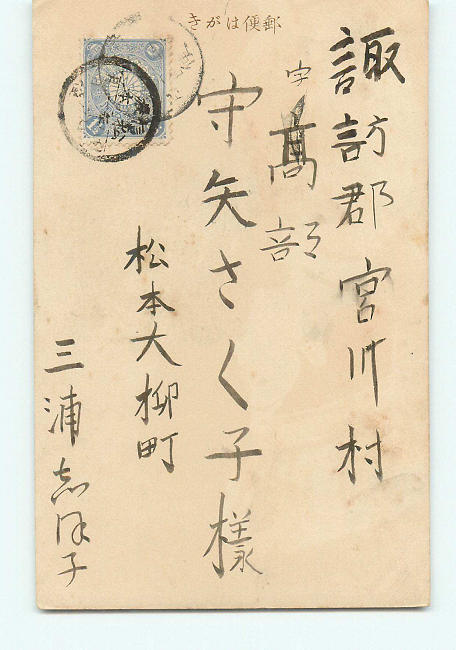 郵便はがき
諏訪郡宮川村
字高部
守矢さく子様
松本大柳町
三浦
子